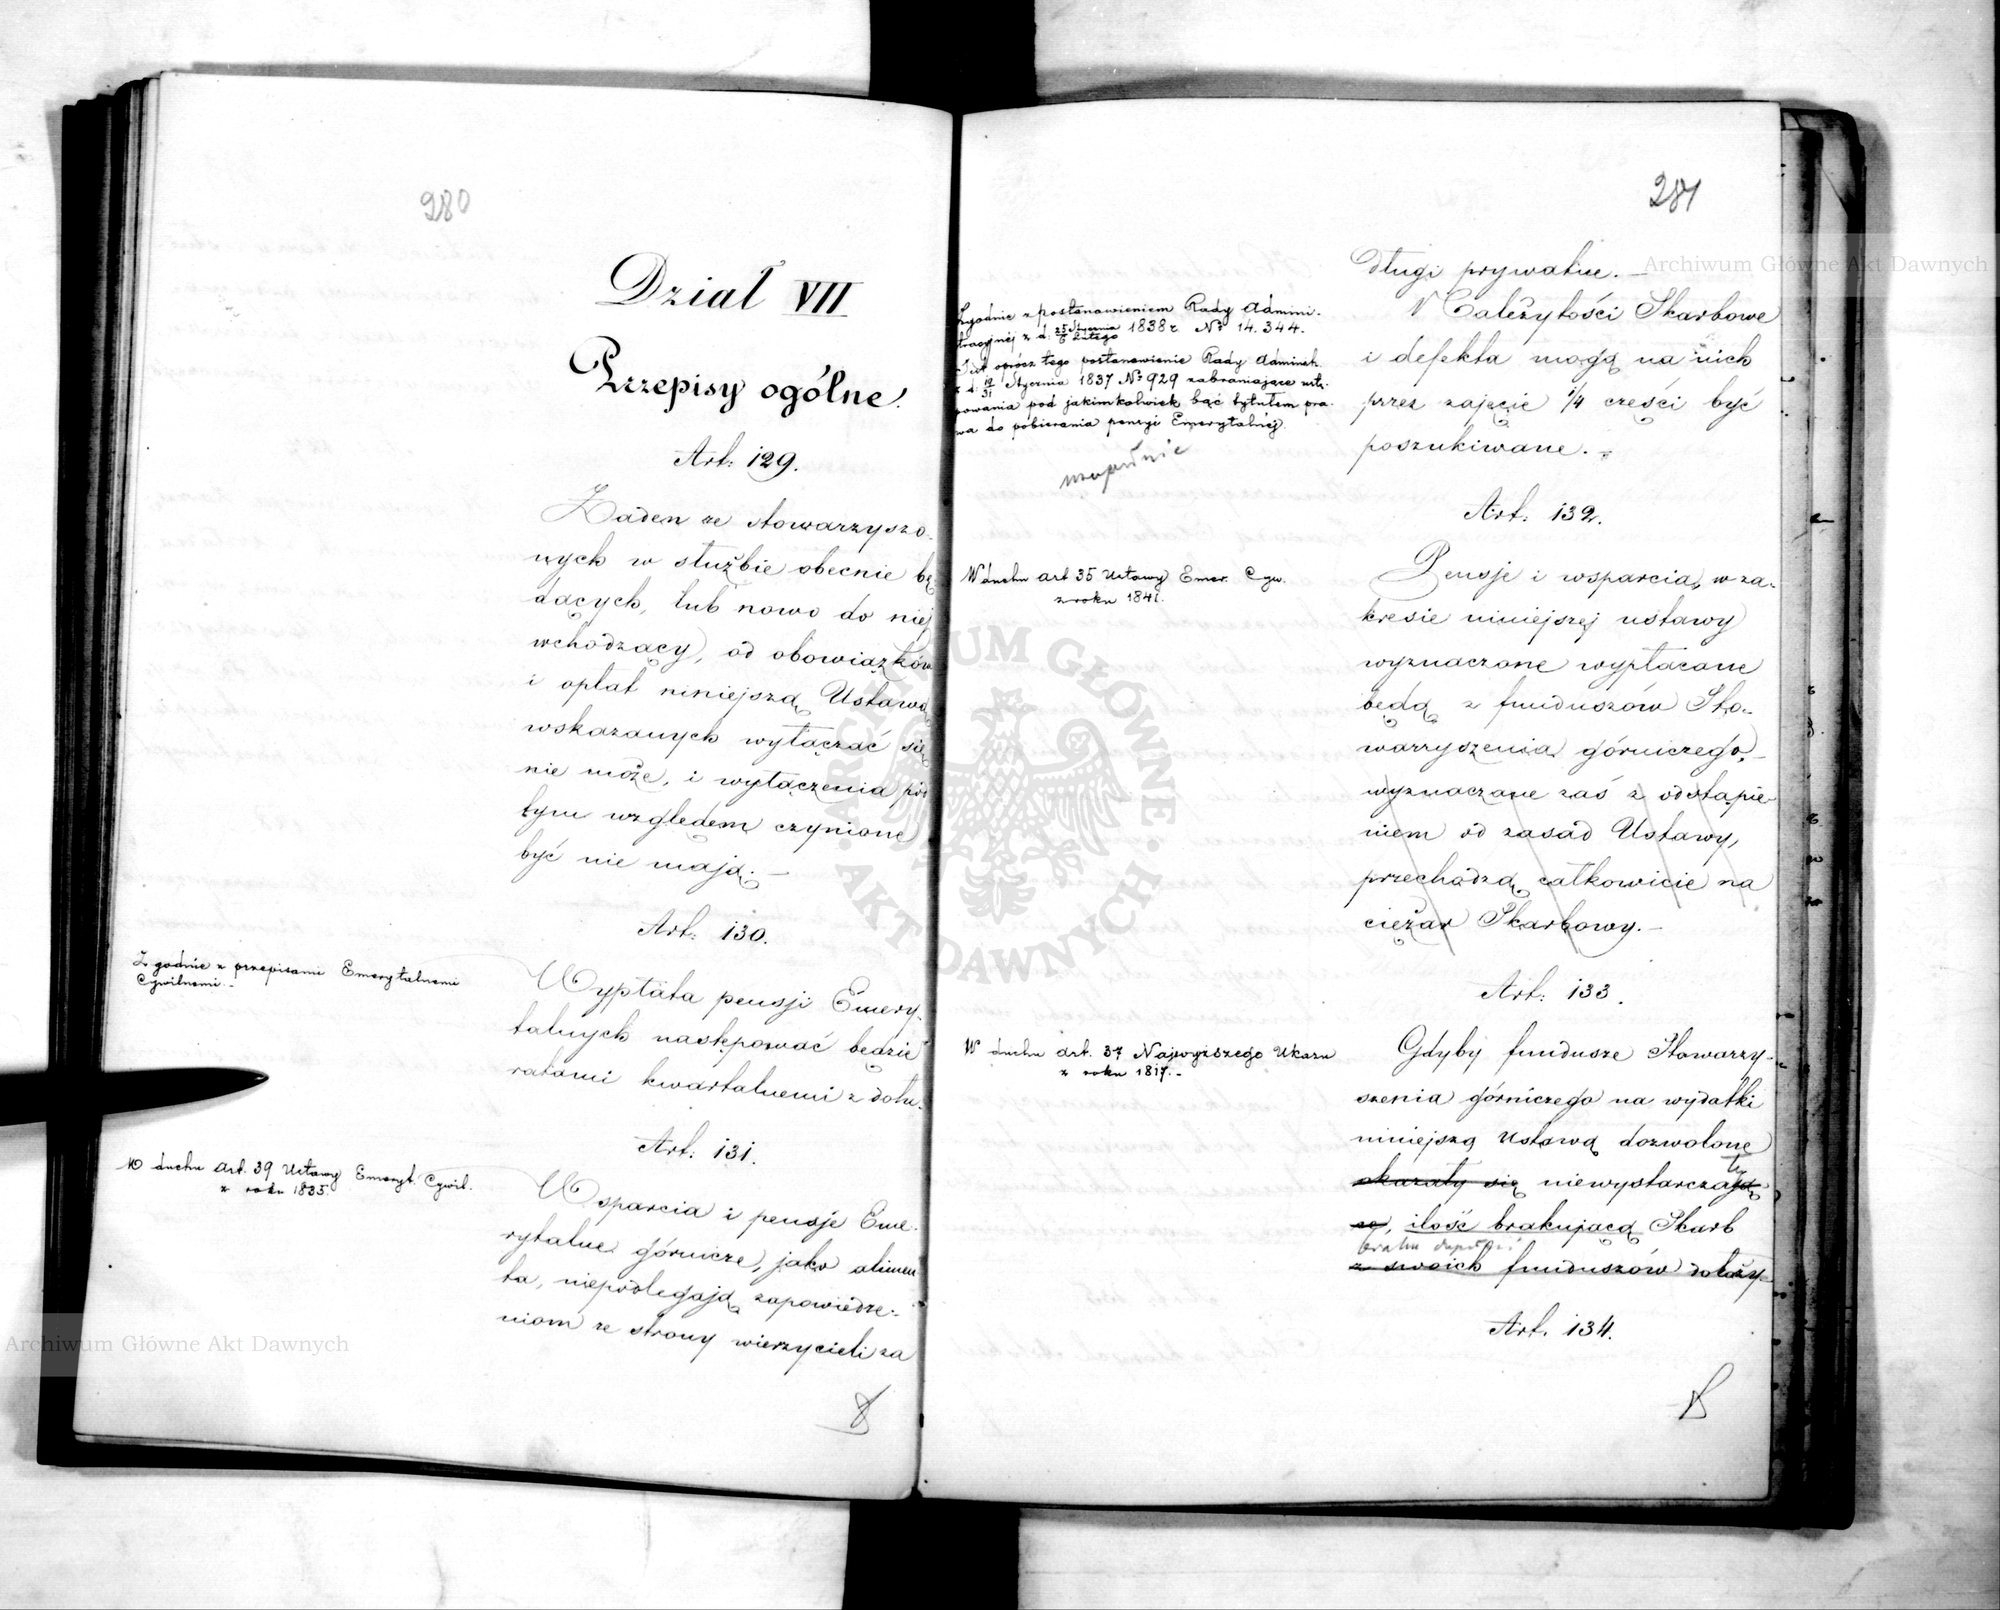 280
Dział VII
Przepisy ogólne.
Art: 129.
Żaden ze stowarzyszo-
nych w służbie obecnie bę
dących, lub nowo do niej
wchodzący, od obowiązków
i opłat niniejszą Ustawą
wskazanych wyłączać się
nie może, i wyłączenia pod
tym względem czynione
być nie mają. —
Art: 130.
Zgodnie z przepisami Emerytalnemi
Cywilnemi. -
Wypłata pensji Emery-
talnych następować będzie
ratami kwartalnemi z dołu.
Art: 131.
W duchu Art. 39 Ustawy Emeryt. Cywil.
z roku 1835.
Wsparcia i pensje Eme-
rytalne górnicze, jako alimen
ta, niepodlegają zapowiedze-
niom ze strony wierzycieli za
281
długi prywatne. —
Zgodnie z postanowieniem Rady Admini-
stracyjnej z d. 25 Stycznia / 6 Lutego 1838 r. No 14.344.
Jest oprócz tego postanowienie Rady Administr.
z d. 19/31 Stycznia 1837 No 929 zabraniające ustę-
powania pod jakimkolwiek bąć tytułem pra-
wa do pobierania pensyi Emerytalnéj.
Należytości Skarbowe
i defekta mogą na nich
przez zajęcie 1/4 części być
poszukiwane. -
Art: 132.
W duchu art 35 Ustawy Emer. Cyw.
z roku 1841.
Pensje i wsparcia, w za-
kresie niniejszej ustawy
wyznaczone wypłacane
będą z funduszów Sto-
warzyszenia górniczego, -
wyznaczane zaś z odstąpie-
niem od zasad Ustawy,
przechodzą całkowicie na
ciężar Skarbowy. —
Art: 133.
W duchu art. 37 Najwyższego Ukazu
z roku 1817. -
Gdyby fundusze Stowarzy-
szenia górniczego na wydatki
niniejszą Ustawą dozwolone
okazały się niewystarczają
ce, ilość brakującą Skarb
z swoich funduszów dołoży
Art. 134.
Archiwum Główne Akt Dawnych
Archiwum Główne Akt Dawnych
ARCHIWUM GŁÓWNE · AKT DAWNYCH ·